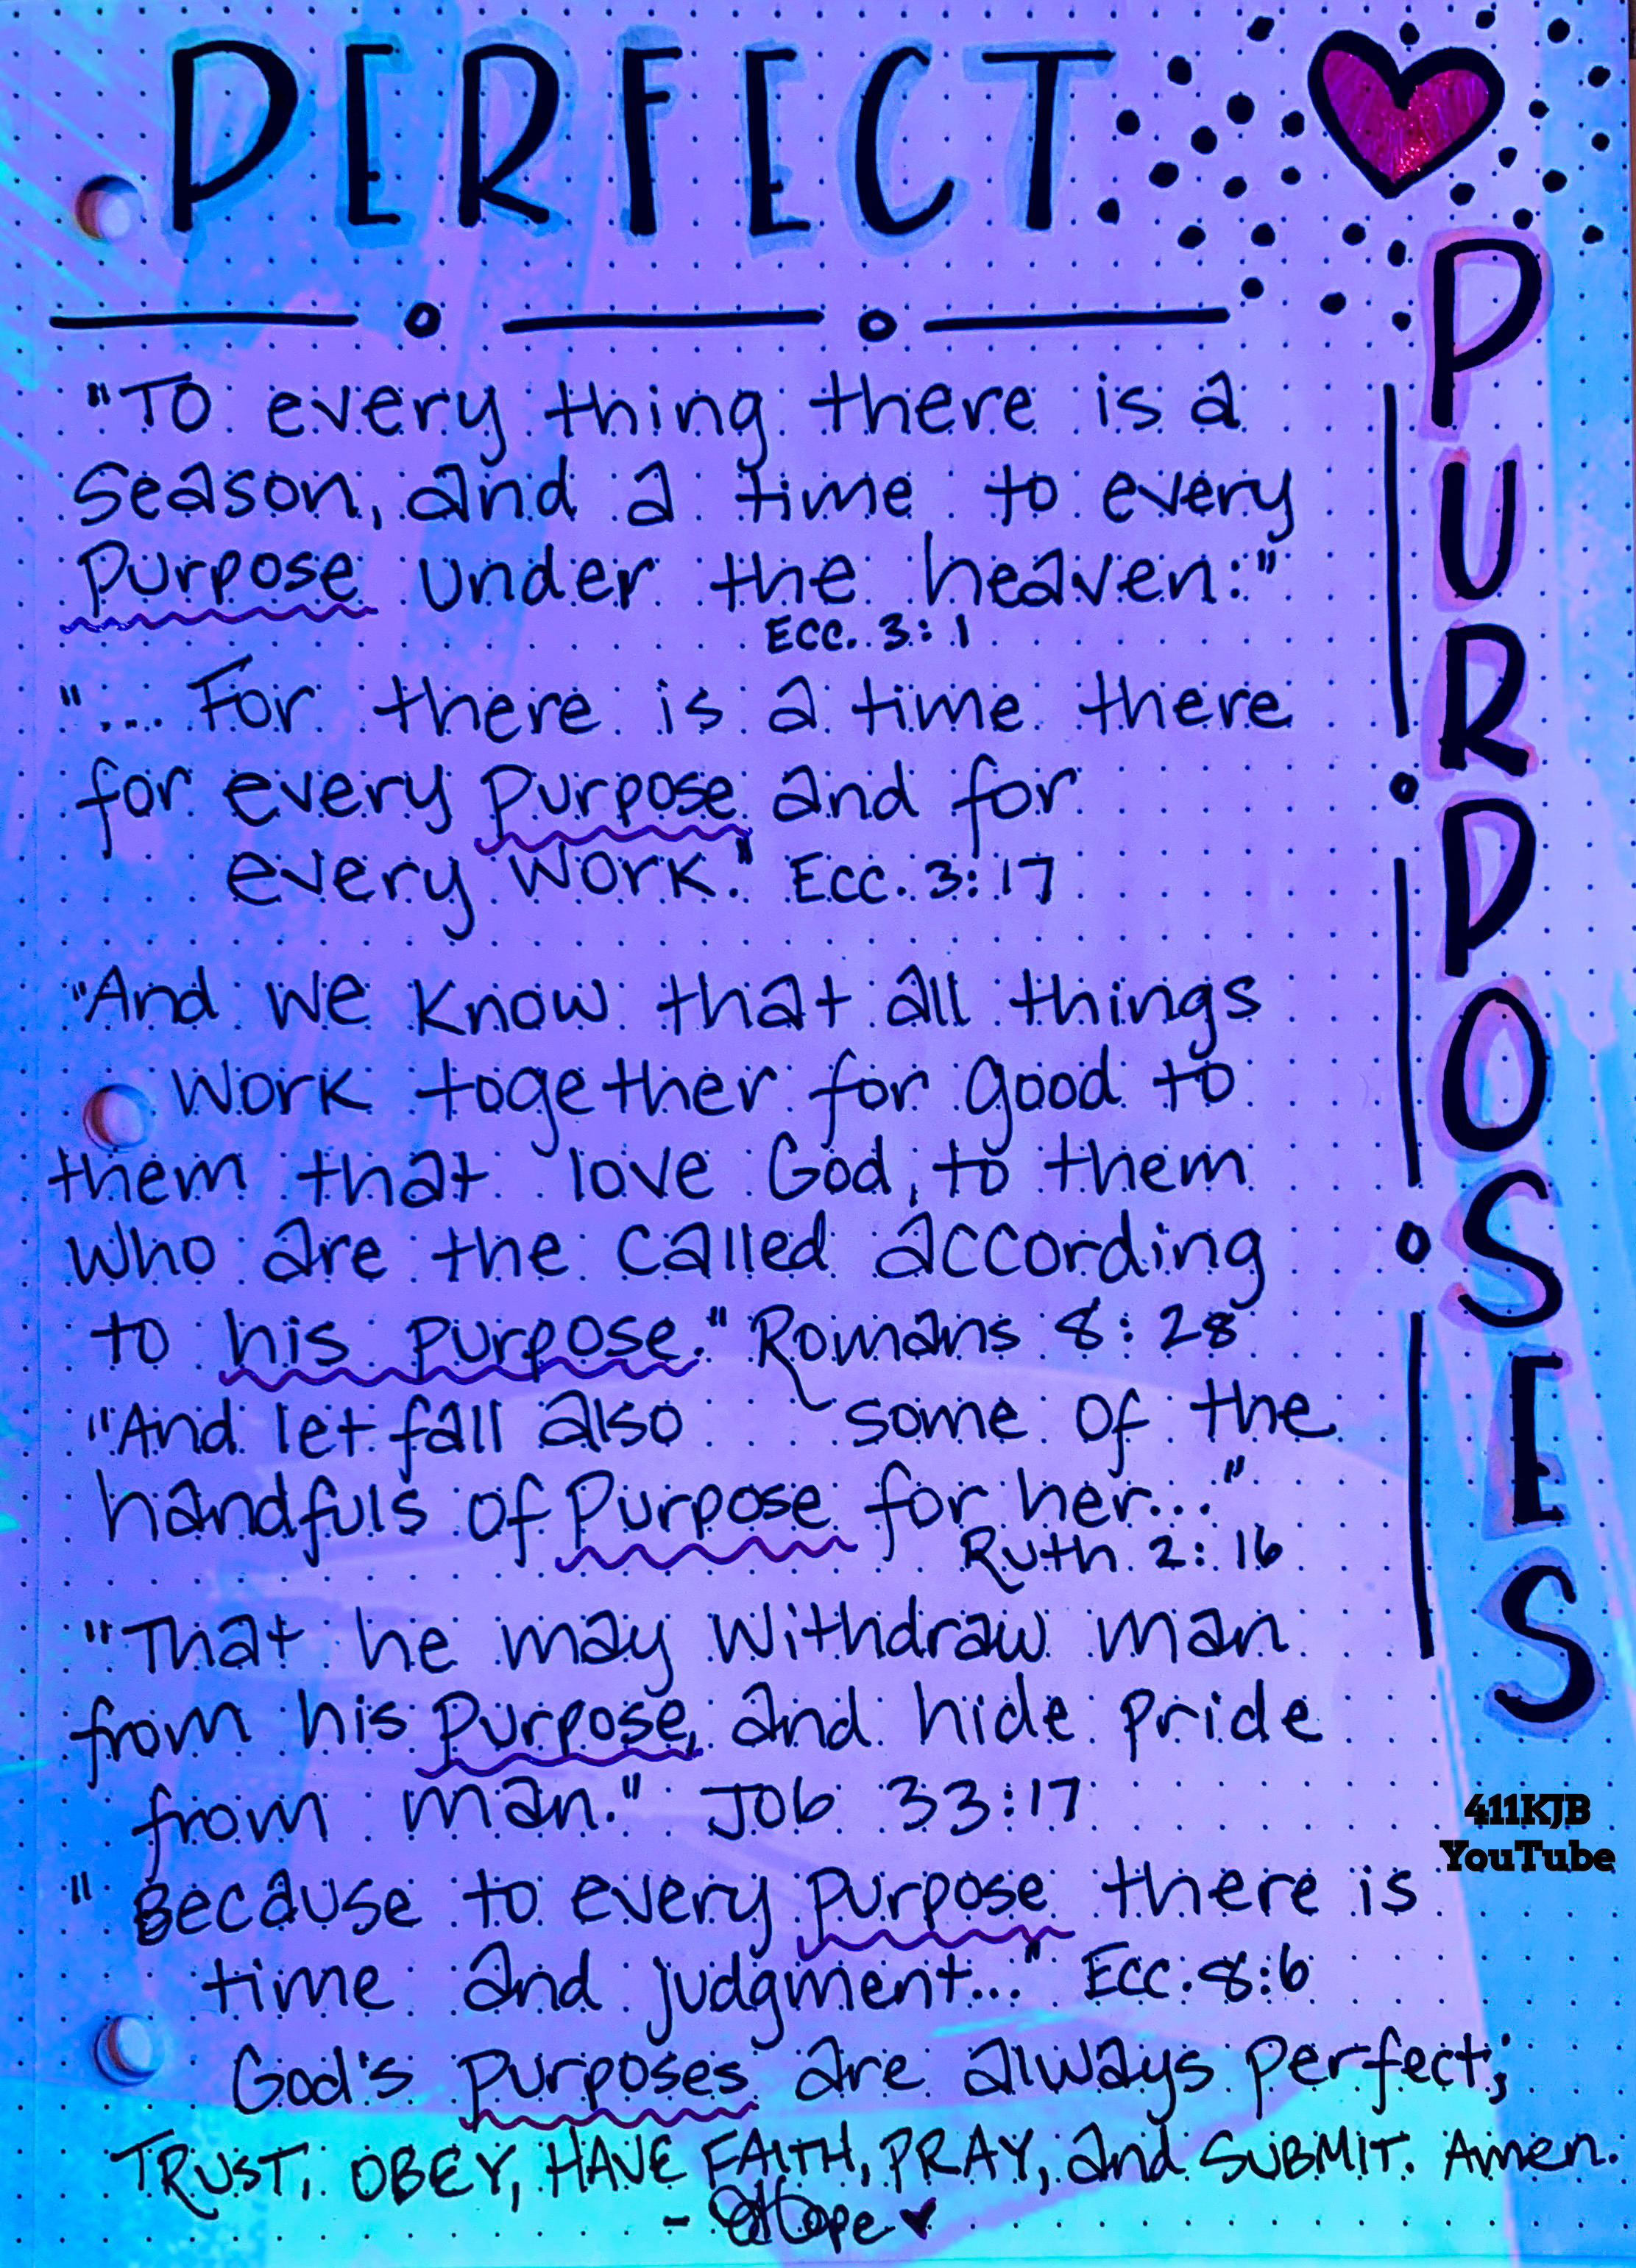 PERFECT
PURPOSES
"To every thing there is a
season, and a time to every
purpose under the heaven:"
Ecc. 3:1
".... For there is a time there
for every purpose and for
every work." Ecc. 3:17
"And we know that all things
work together for good to
them that love God, to them
who are the called according
to his purpose." Romans 8:28
"And let fall also some of the
handfuls of purpose for her..."
Ruth 2:16
"That he may withdraw man
from his purpose, and hide pride
from man." Job 33:17
"Because to every purpose there is
time and judgment..." Ecc. 8:6
God's purposes are always perfect;
TRUST, OBEY, HAVE FAITH, PRAY, and SUBMIT. Amen.
- Hope
411KJB
YouTube